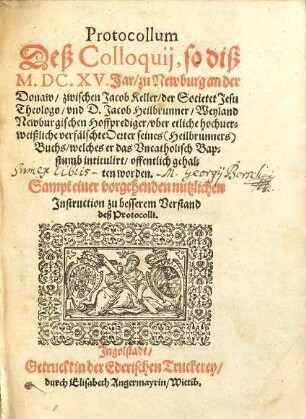 Protocollum
Deß Colloquij, so diß
M. DC. XV. Jar/ zu Newburg an der
Donaw/ zwischen Jacob Keller/ der Societet Jesu
Theologo/ vnd D. Jacob Heilbrunner/ Weyland
Newburgischen Hoffprediger/ vber etliche hochuer-
weißliche verfälschte Oerter seines (Heilbrunners)
Buchs/ welches er das Vncatholisch Bap-
stumb intitulirt/ offentlich gehal-
ten worden.
Sampt einer vorgehenden nützlichen
Instruction zu besserem Verstand
deß Protocolli.
Ingolstadt/
Getruckt in der Ederischen Truckerey/
durch Elisabeth Angermayrin/ Wittib.